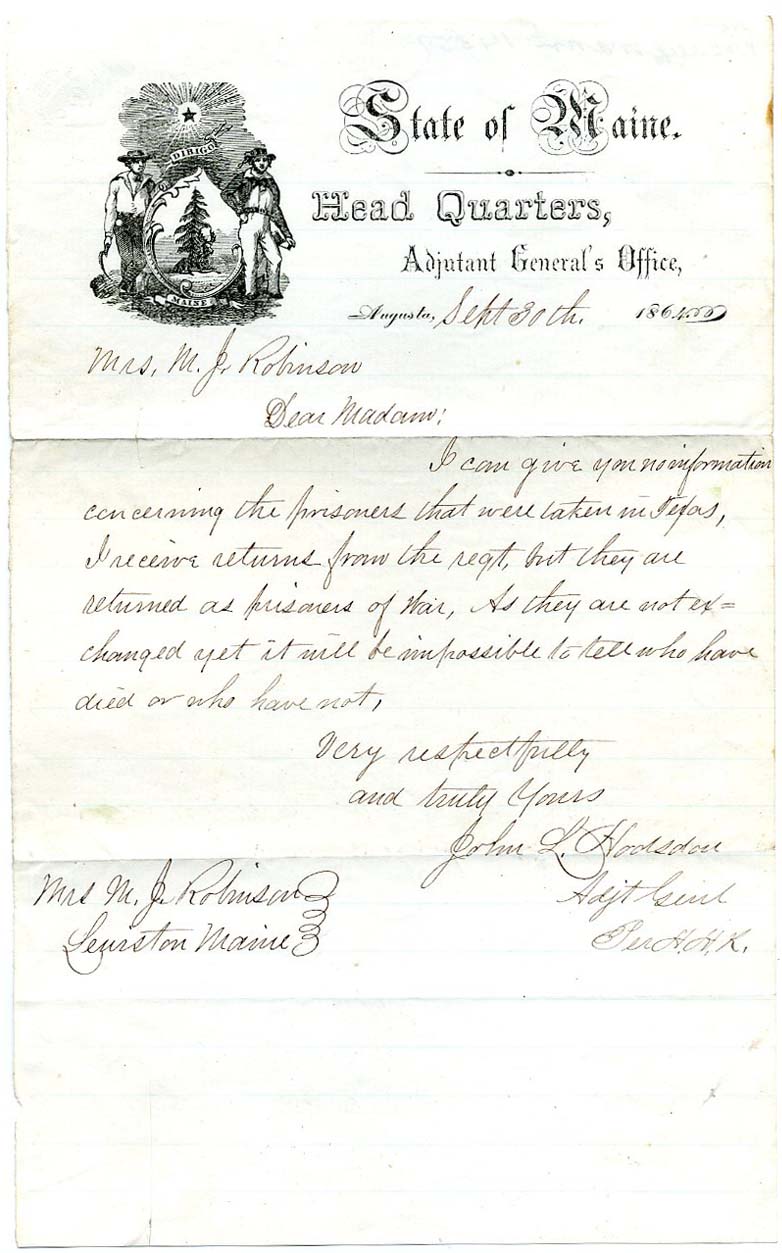 DIRIGO
MAINE
State of Maine.
Head Quarters,
Adjutant General's Office,
Augusta, Sept 30th. 1864
Mrs, M. J. Robinson
Dear Madam:
I can give you no information
concerning the prisoners that were taken in Texas,
I receive returns from the regt, but they are
returned as prisoners of War, As they are not ex=
changed yet it will be impossible to tell who have
died or who have not,
Very respectfully
and truly Yours
John L. Hodsdon
Adjt Genl
Per H. H. K.
Mrs M. J. Robinson
Lewiston Maine